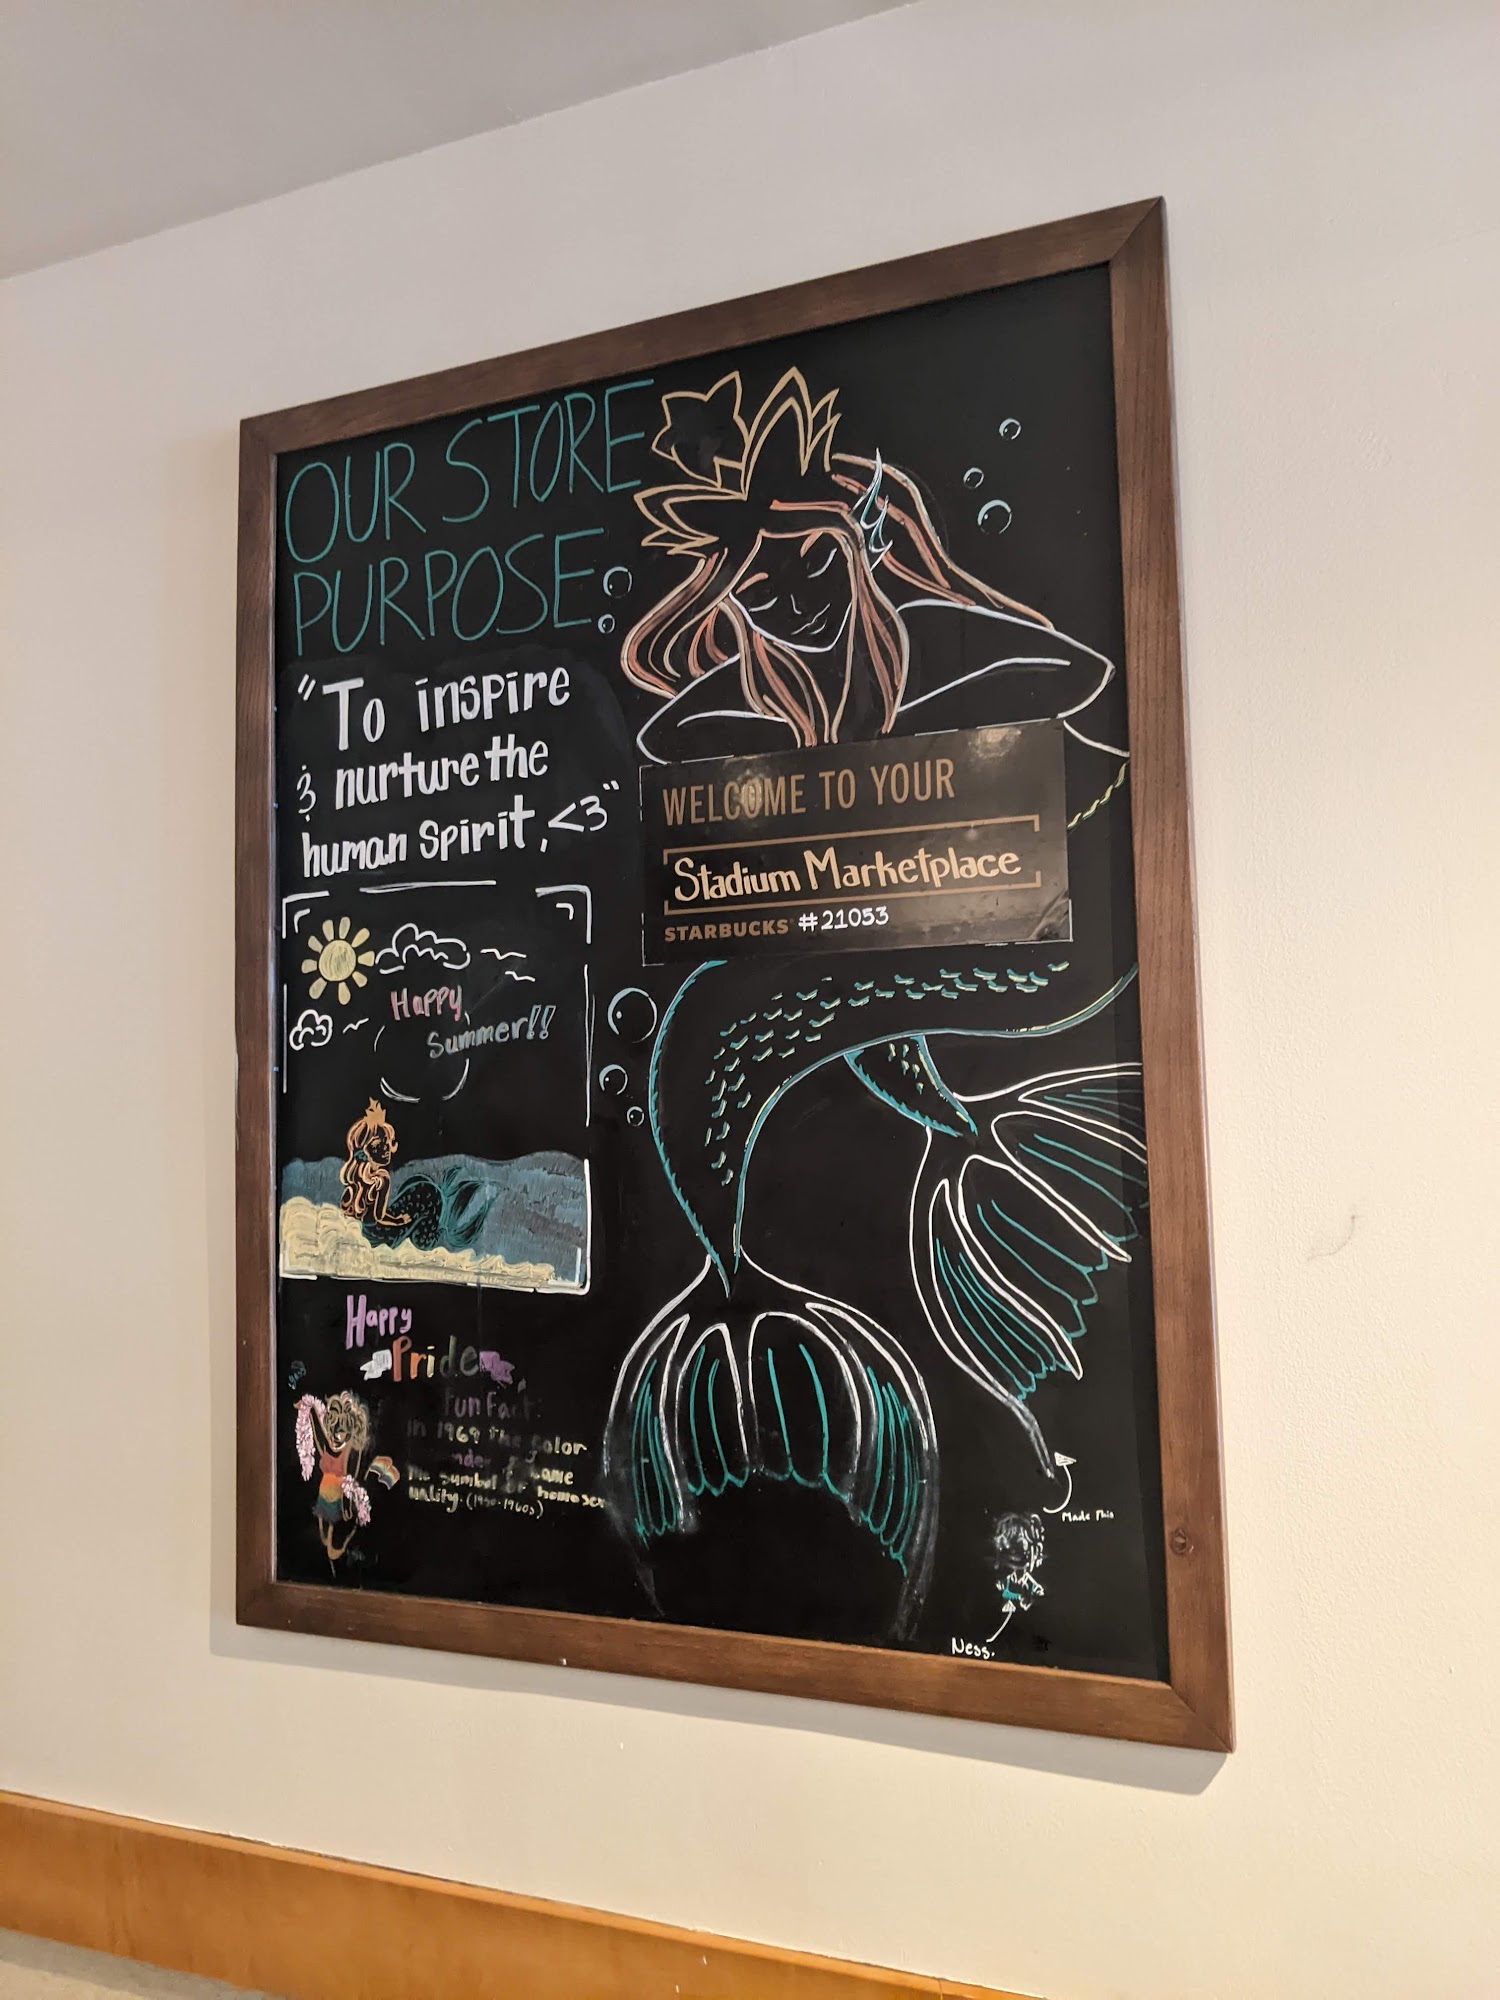 OUR STORE
PURPOSE:
"To inspire
& nurture the
human spirit, <3"
WELCOME TO YOUR
Stadium Marketplace
STARBUCKS #21053
Happy
Summer!!
Happy
Pride
Fun Fact:
in 1969 the color
the symbol
homosex
uality. (1950-1960s)
Made This
Ness.